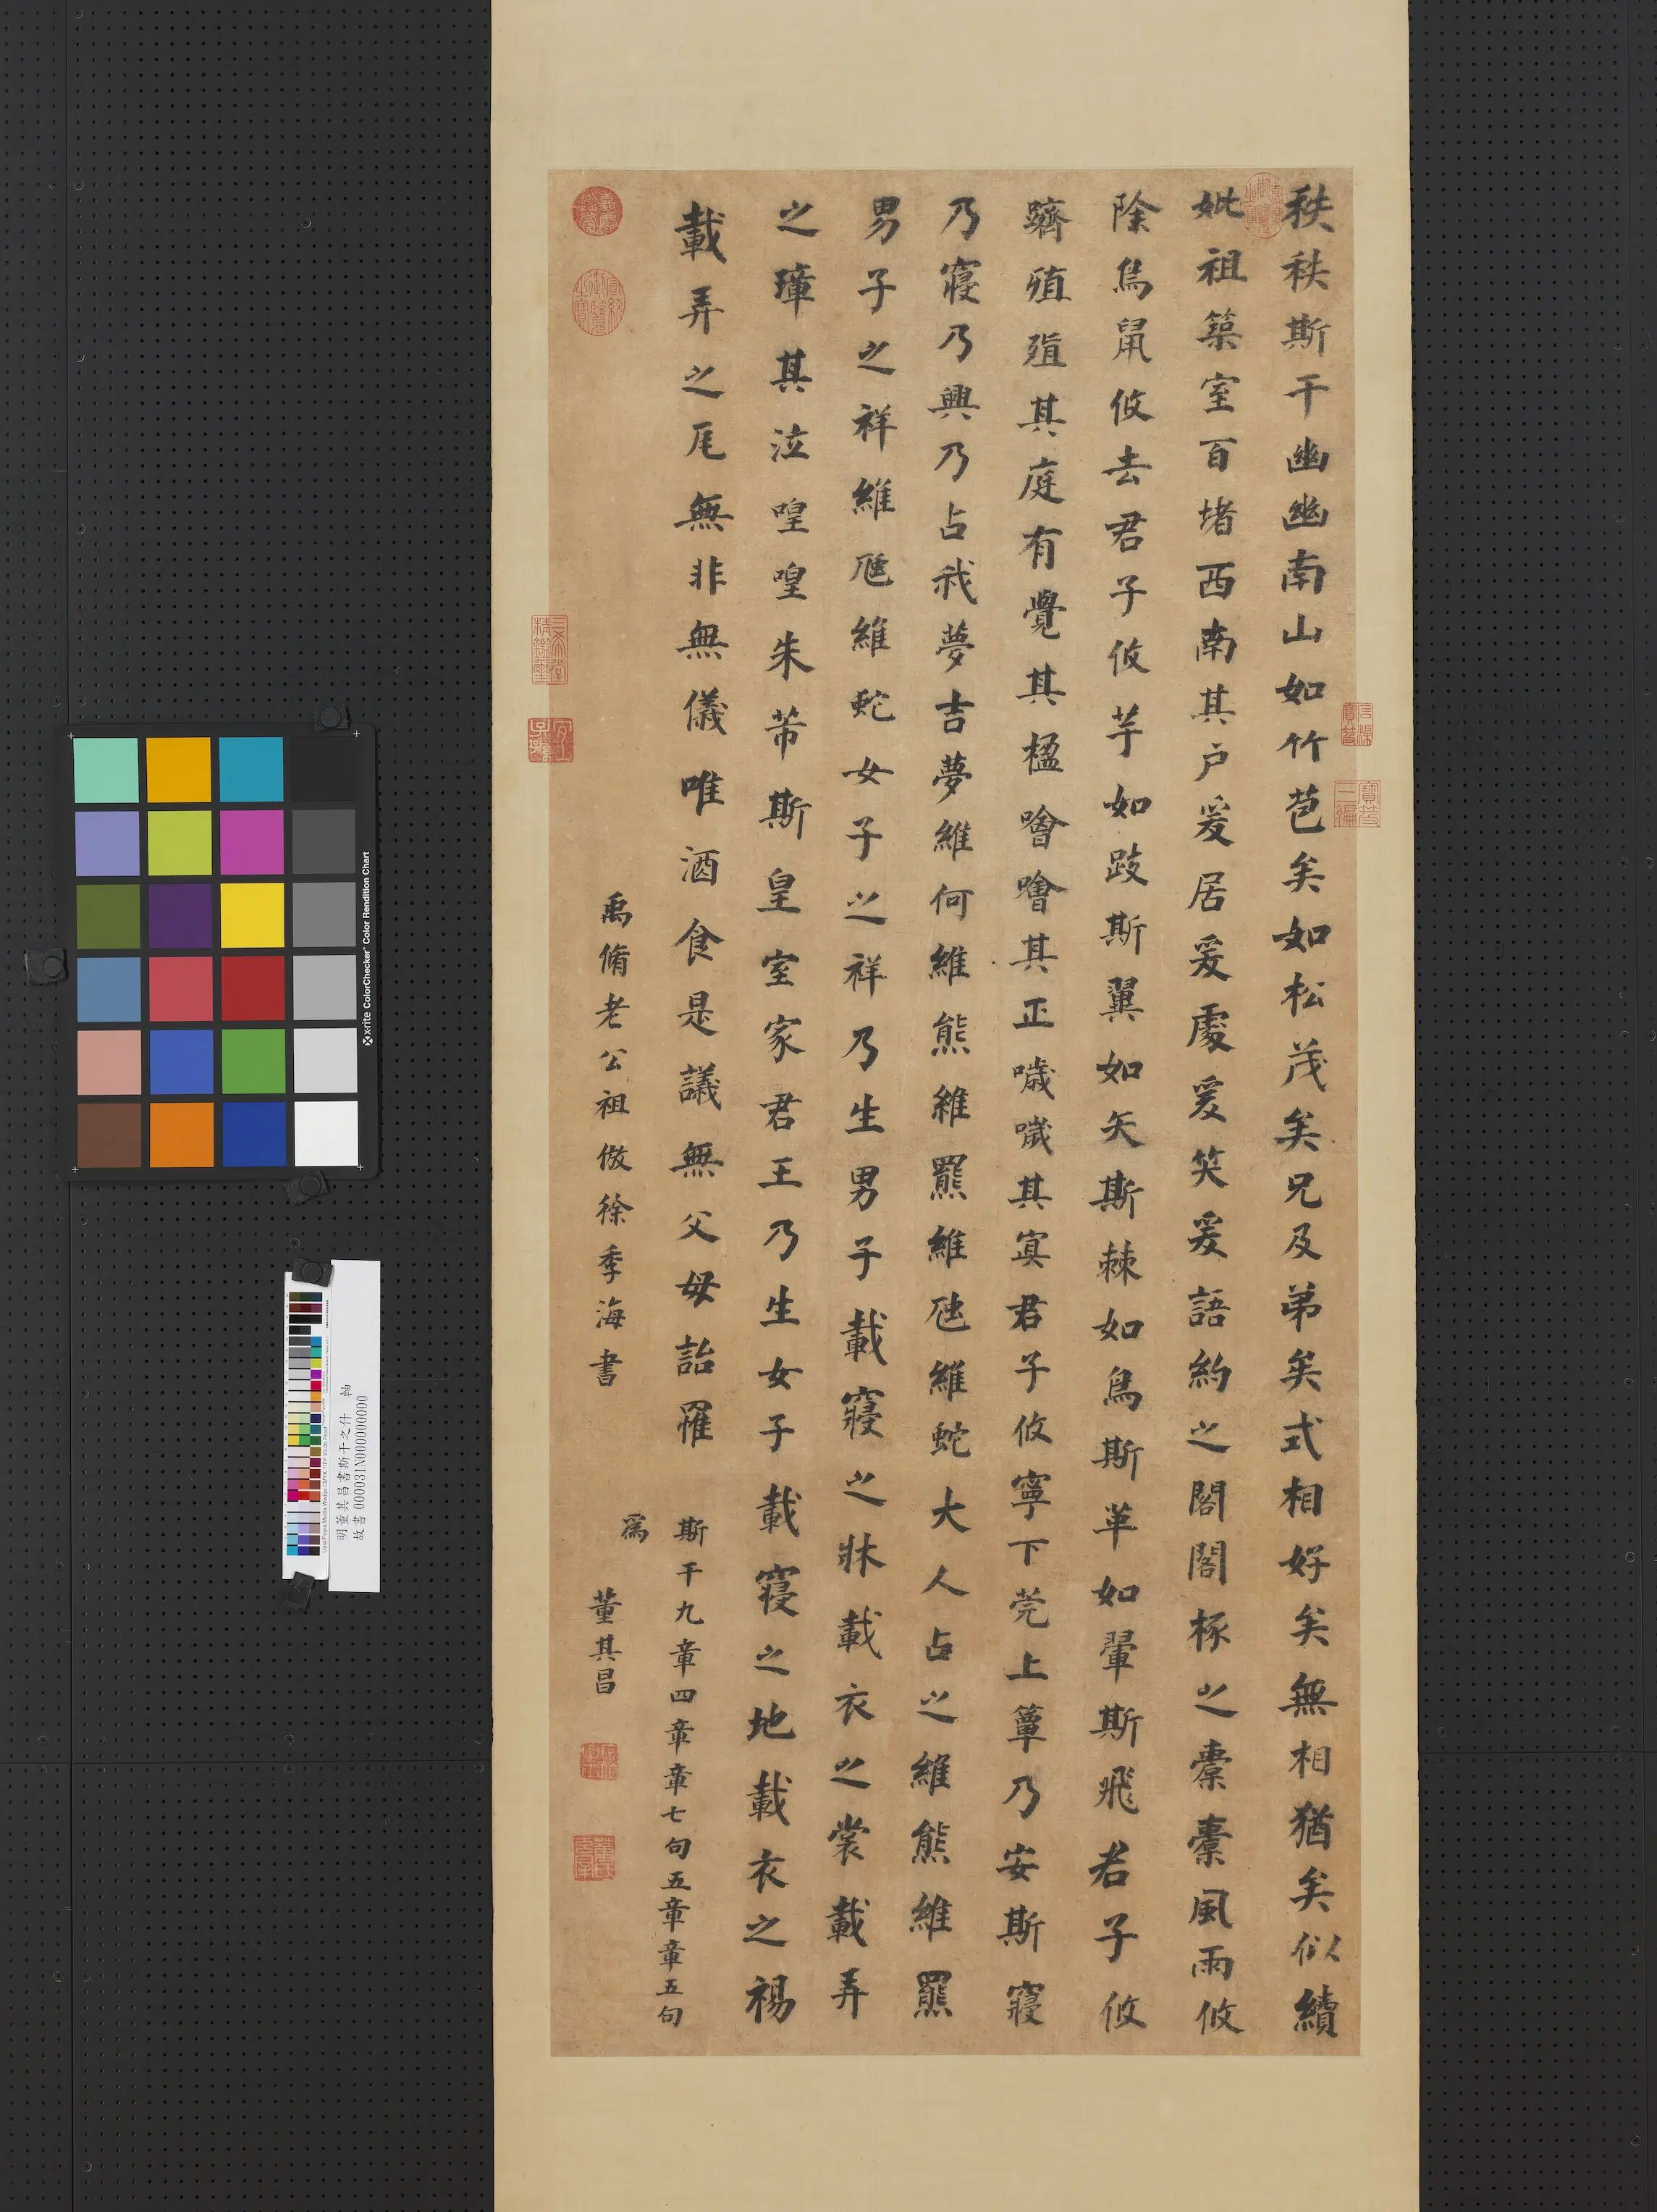 秩秩斯干幽幽南山如竹苞矣如松茂矣兄及弟矣式相好矣無相猶矣似續
妣祖築室百堵西南其户爰居爰處爰笑爰語約之閣閣椓之橐橐風雨攸
除鳥鼠攸去君子攸芋如跂斯翼如矢斯棘如鳥斯革如翬斯飛君子攸
躋殖殖其庭有覺其楹噲噲其正噦噦其冥君子攸寧下莞上簟乃安斯寢
乃寢乃興乃占我夢吉夢維何維熊維羆維虺維蛇大人占之維熊維羆
男子之祥維虺維蛇女子之祥乃生男子載寢之牀載衣之裳載弄
之璋其泣喤喤朱芾斯皇室家君王乃生女子載寢之地載衣之裼
載弄之瓦無非無儀唯酒食是議無父母詒罹
斯干九章四章章七句五章章五句
為
禹脩老公祖倣徐季海書
董其昌
石渠寶笈
寶笈三編
三希堂精鑑璽
宜子孫
宣統御覽之寶
x-rite ColorChecker Color Rendition Chart
明董其昌書斯干之什 軸
故書000031N000000000